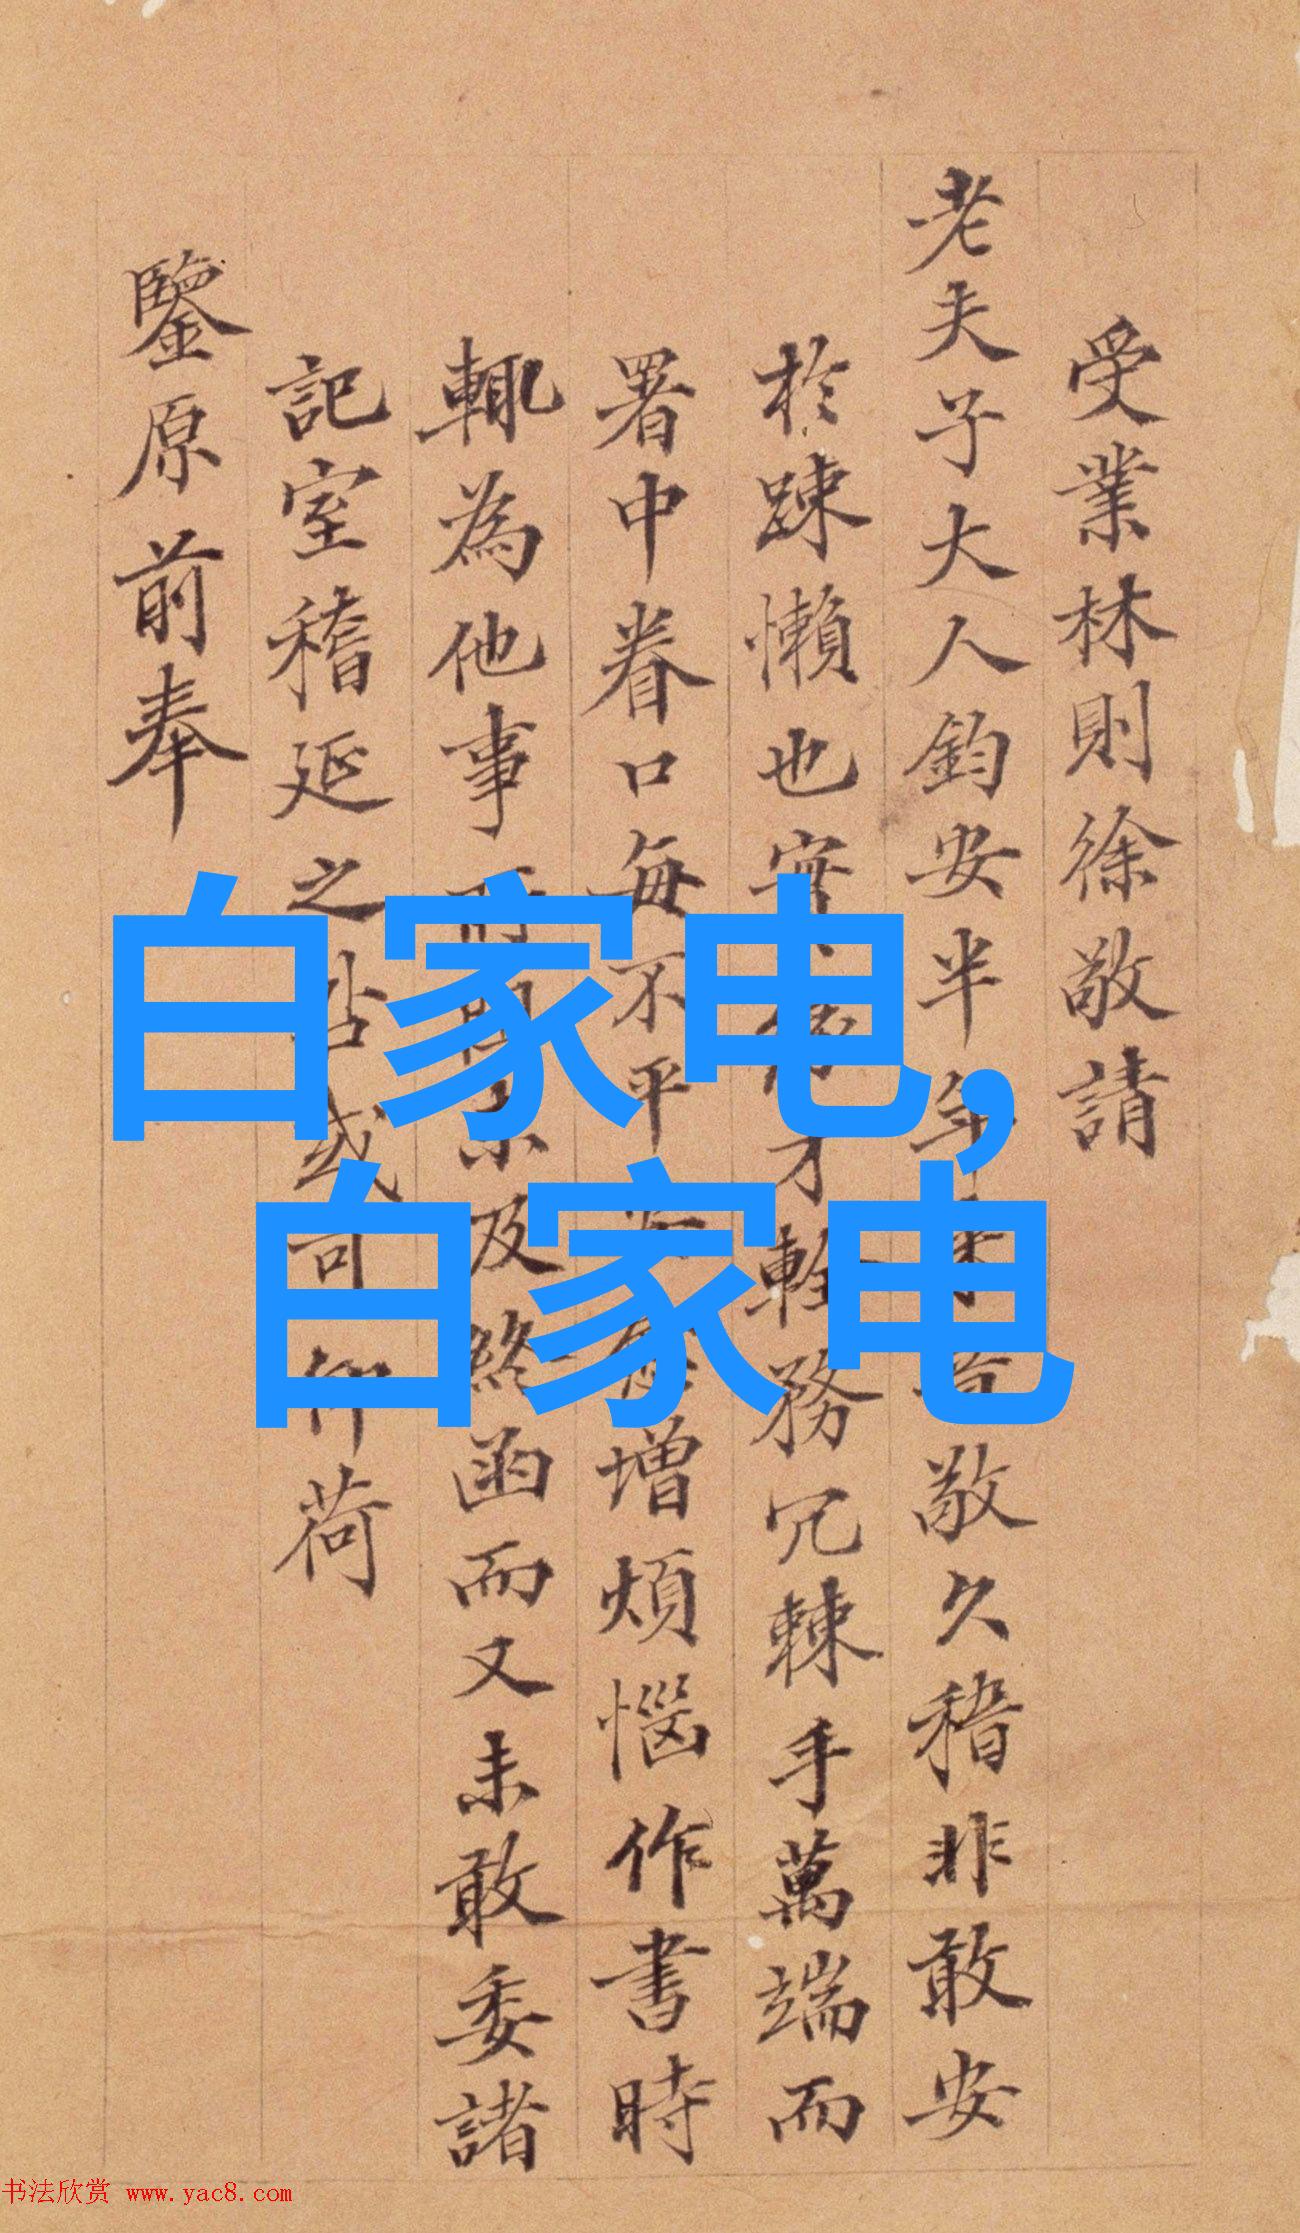 受業林則徐敬請
老夫子大人鈞安半年來音敬久稽非敢安
於踈懶也實才輇務冗棘手萬端而
署中眷口每不平增煩惱作書時
輒為他事所及終函而又未敢委諸
記室稽延之咎或可仰荷
鑒原前奉
白家电,
白家电
书法欣赏 www.yac8.com